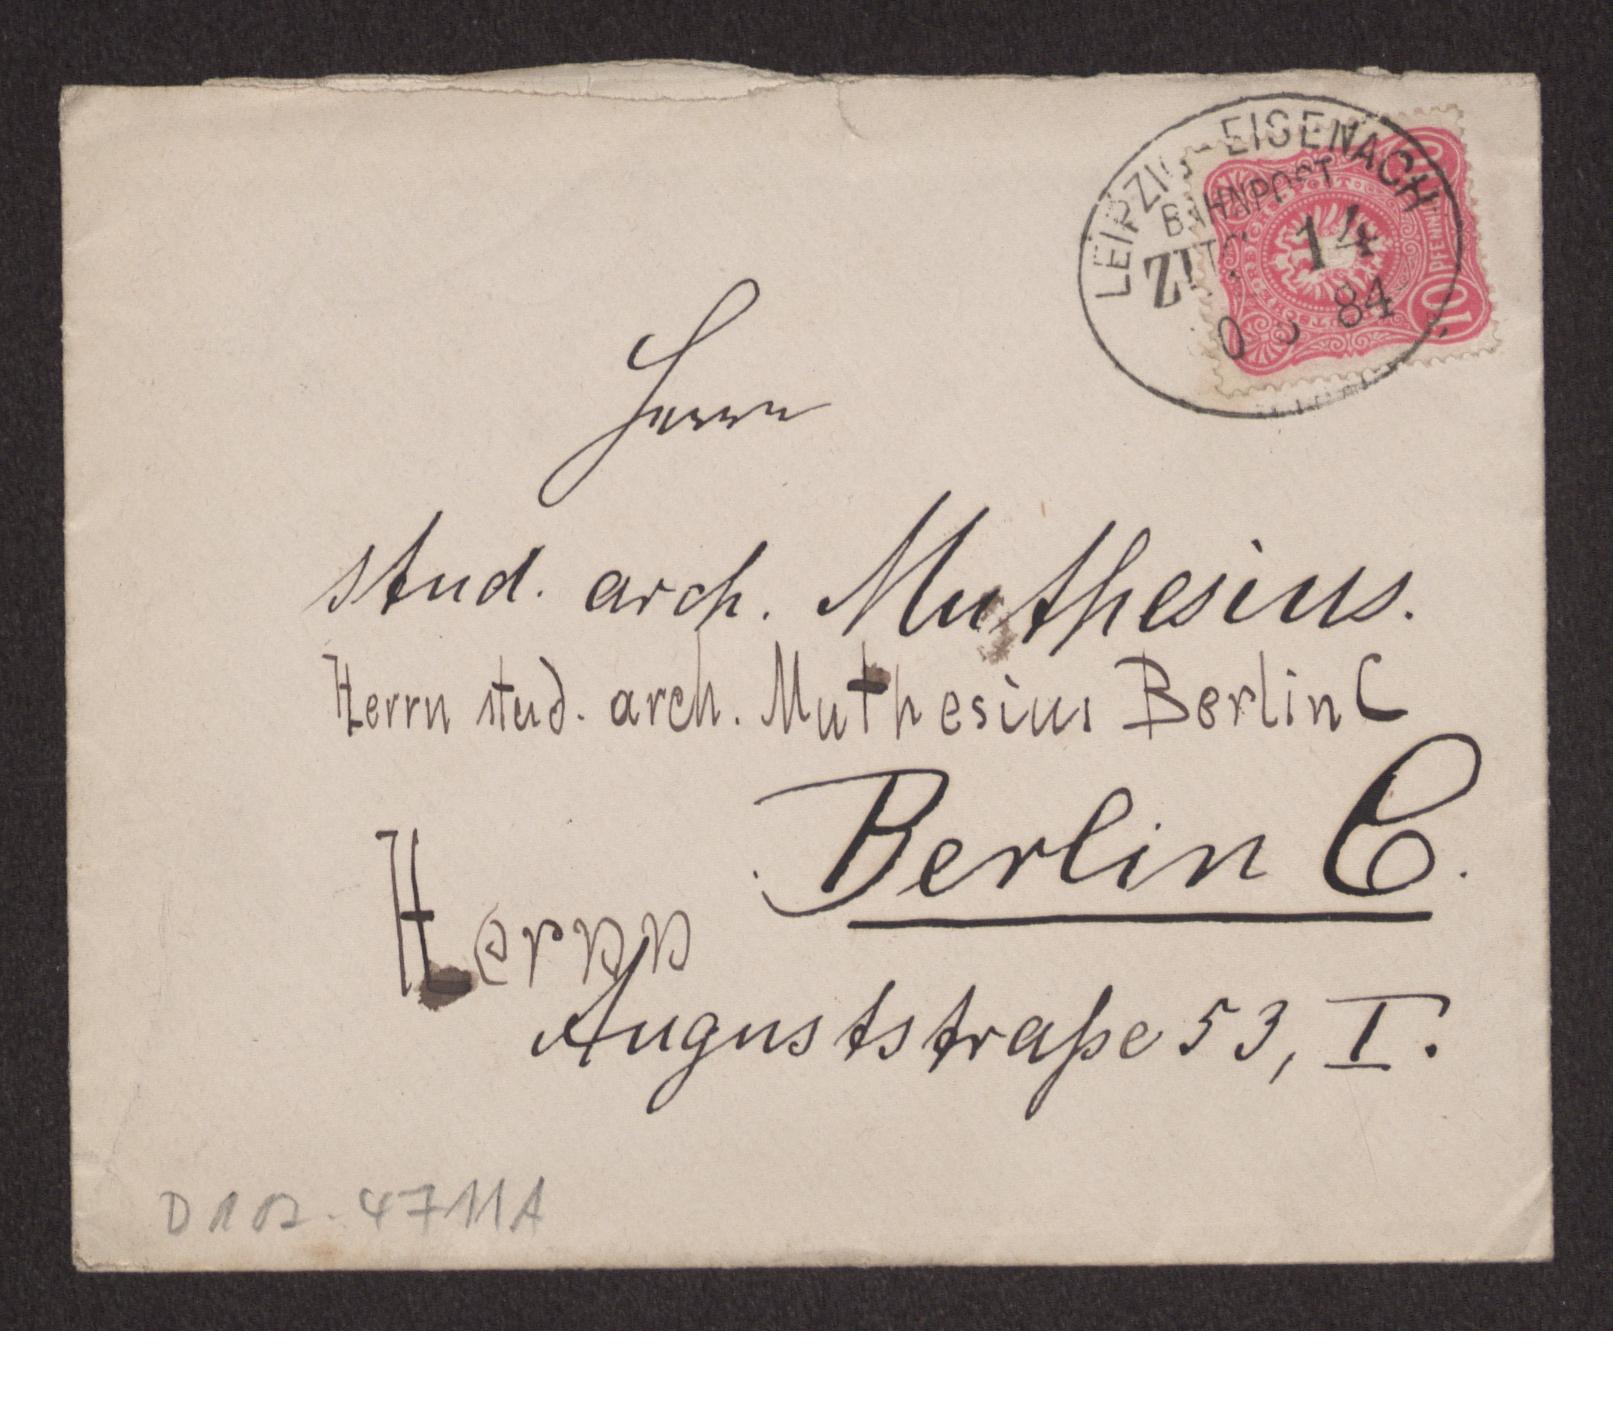 LEIPZIG - EISENACH
BAHNPOST
ZUG 14
84
10 PFENNIG 10
Herrn
stud. arch. Muthesius.
Herrn stud. arch. Muthesius Berlin C
Berlin C.
Herrn
Auguststraße 53, I.
D 102-4711A